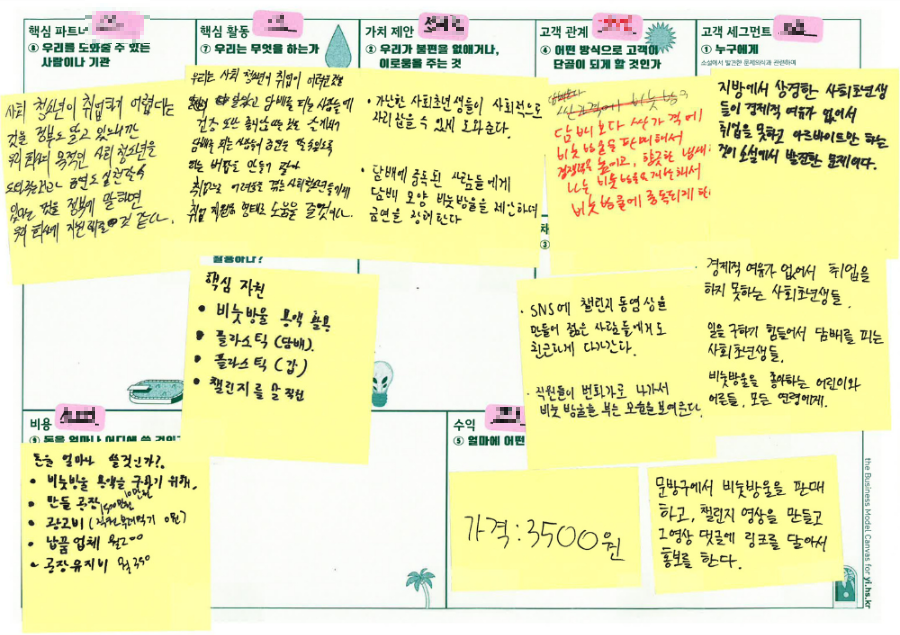 핵심 파트너
⑧ 우리를 도와줄 수 있는
사람이나 기관
사회 청소년이 취업하기 어렵다는
것을 정부도 알고 있으니까
우리 회사의 목적인 사회 청소년을
금연도 실현할 수
있다는 것을 정부에 말하면
우리 회사에 지원해줄 것 같다.
핵심 활동
⑦ 우리는 무엇을 하는가
우리는 사회 청소년이 취업이 어려운 것을
알고 담배를 피는 사람들에
건강 또는
담배를 피는 사람들이 금연을 할 수 있도록
하는 버블을 만들기
취업으로 어려움을 겪는 사회청소년들에게
취업 지원의 형태로 도움을 줄 것이다.
핵심 자원
• 비눗방울 용액 활용
• 플라스틱 (담배).
• 플라스틱 (갑)
• 챌린지를 할 직원
가치 제안
② 우리가 불편을 없애거나,
이로움을 주는 것
• 가난한 사회초년생들이 사회적으로
자리잡을 수 있게 도와준다.
• 담배에 중독된 사람들에게
담배 모양 비눗방울을 제안하여
금연을 장려한다
고객 관계
④ 어떤 방식으로 고객이
단골이 되게 할 것인가
담배보다 싼 가격에
비눗방울을 판매해서
경쟁력을 높이고, 향긋한 냄새
나는 비눗방울을 개발해서
비눗방울에 중독되게 한다
③
• SNS에 챌린지 동영상을
만들어 젊은 사람들에게도
친근하게 다가간다.
• 직원들이 번화가로 나가서
비눗방울을 부는 모습을 보여준다.
고객 세그먼트
① 누구에게
소설에서 발견한 문제의식과 관련하여
지방에서 상경한 사회초년생
들이 경제적 여유가 없어서
취업을 못하고 아르바이트만 하는
것이 소설에서 발견한 문제이다.
• 경제적 여유가 없어서 취업을
하지 못하는 사회초년생들.
일을 구하기 힘들어서 담배를 피는
사회초년생들,
비눗방울을 좋아하는 어린이와
어른들, 모든 연령에게.
비용
⑨ 돈을 얼마나 어디에 쓸 것인가
돈을 얼마나 쓸것인가?
• 비눗방울 용액을 구하기 위해.
• 만들 공장
• 광고비
• 납품 업체 월200
• 공장유지비 월250
수익
⑤ 얼마에 어떤
가격:3500원
문방구에서 비눗방울을 판매
하고, 챌린지 영상을 만들고
그영상 댓글에 링크를 달아서
홍보를 한다.
the Business Model Canvas for yl.hs.kr